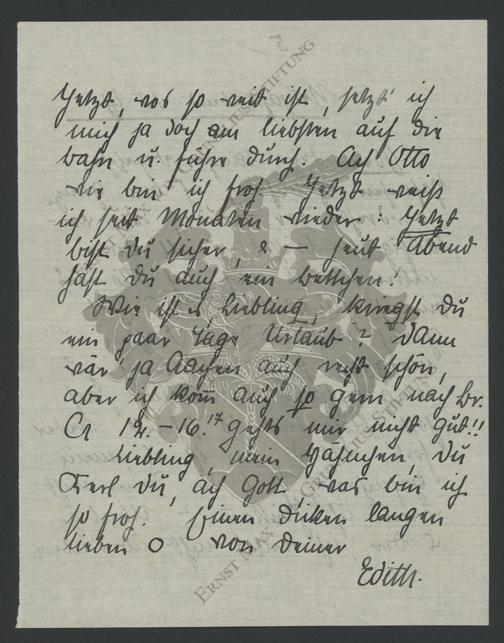 5
Jetzt, wos so weit ist, setzt' ich
mich ja doch am liebsten auf die
bahn u. führe durch. Ach Otto
wie bin ich froh. Jetzt weiß
ich seit Monaten wieder: Jetzt
bist du sicher, & — heut Abend
hast du auch ein bettchen!
Wie ist es Liebling, kriegst du
ein paar Tage Urlaub? Dann
wär ja Aachen auch recht schön,
aber ich kom̄ auch so gern nach Br.
Ca 12.–16.17 gehts mir nicht gut!!
Liebling, mein du
Kerl du, ach Gott was bin ich
so froh. Einen dicken langen
lieben O von deiner
Edith.
ERNST MAX STIFTUNG